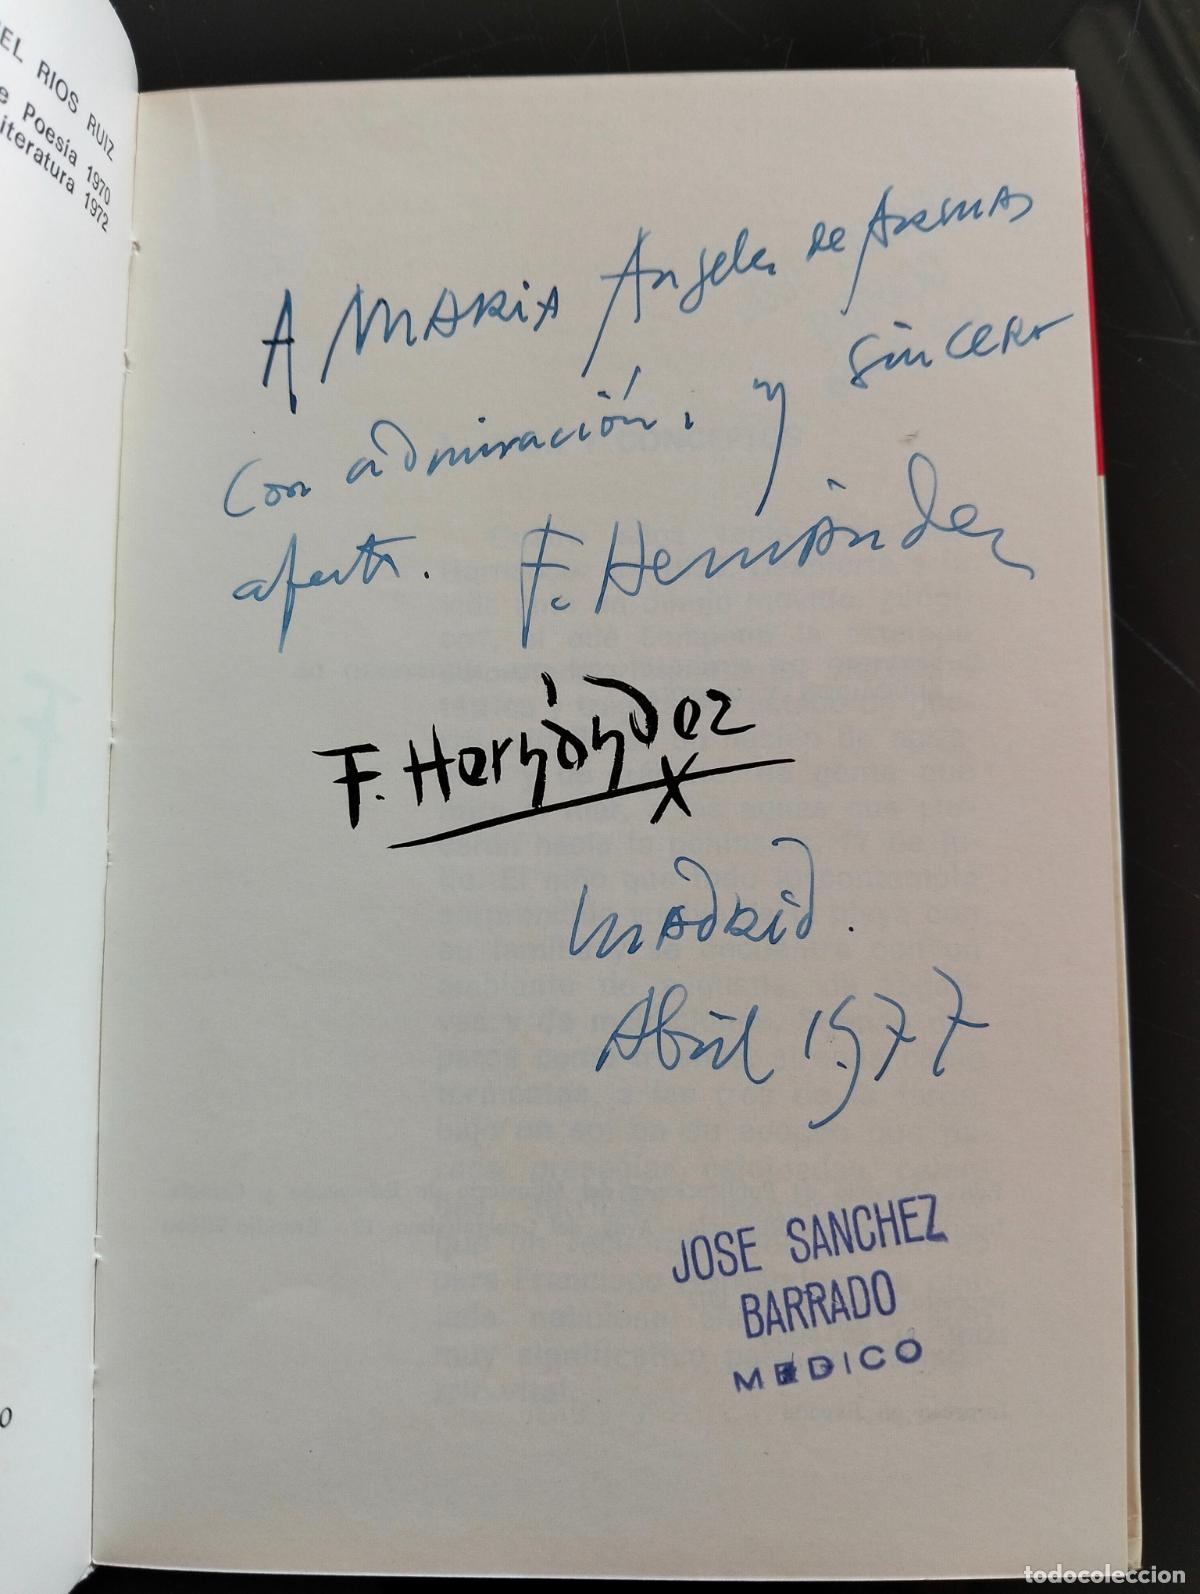 EL RIOS RUIZ
e Poesía 1970
iteratura 1972
A MARIA Angeles de ARMAS
con admiración, y sincero
afecto. F. Hernández
F. Hernández
Madrid.
Abril 1977
JOSE SANCHEZ
BARRADO
MEDICO
todocoleccion